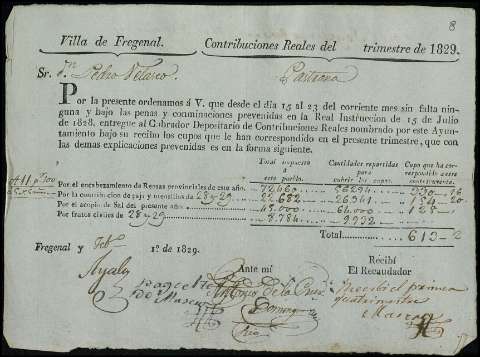 8
Villa de Fregenal. Contribuciones Reales del trimestre de 1829.
Sr. Dn. Pedro Velasco. Pastrana
Por la presente ordenamos á V. que desde el dia 15 al 23 del corriente mes sin falta nin-
guna y bajo las penas y conminaciones prevenidas en la Real Instruccion de 15 de Julio
de 1828, entregue al Cobrador Depositario de Contribuciones Reales nombrado por este Ayun-
tamiento bajo su recibo los cupos que le han correspondido en el presente trimestre, que con
las demas explicaciones prevenidas es en la forma siguiente.
Total impuesto a este pueblo. Cantidades repartidas para cubrir los cupos. Cupo que ha correspondido a este contribuyente.
Por el encabezamiento de Rentas provinciales de este año. 72.660
Por la contribucion de paja y utensilios de 28 y 29 22.682 26.941 184 20
Por el acopio de Sal del presente año 48.000 64.000 128
Por frutos civiles de 28 y 29 8.784 9.932
Total 613
Fregenal y Febo. 1.º de 1829.
Ante mí Recibí
El Recaudador
Ayala
Antonio de la Cruz
Recibí el primer
quatrimestre